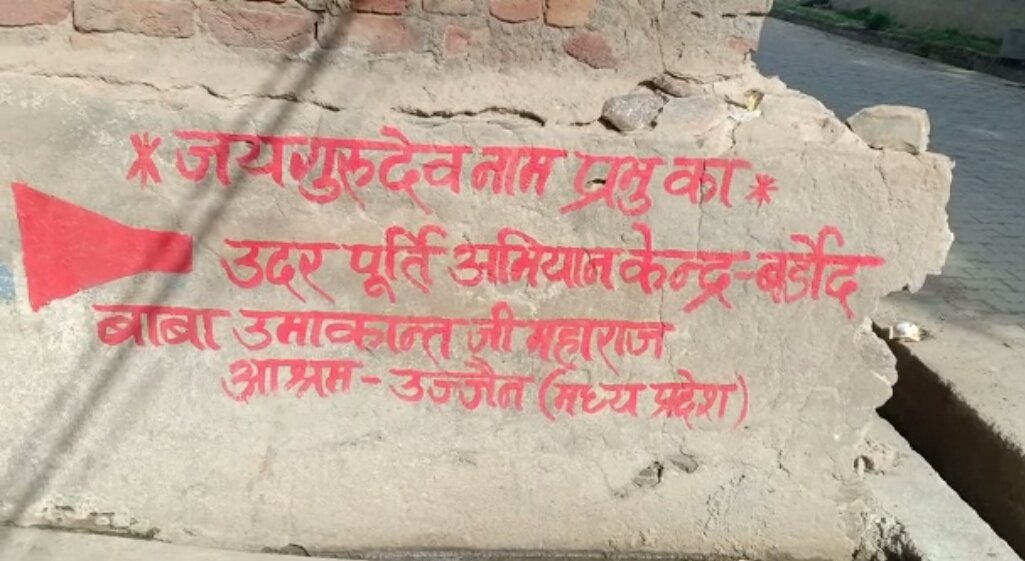 * जयगुरुदेव नाम प्रभु का *
उदर पूर्ति अभियान केन्द्र-बर्डौद
बाबा उमाकान्त जी महाराज
आश्रम - उज्जैन (मध्य प्रदेश)